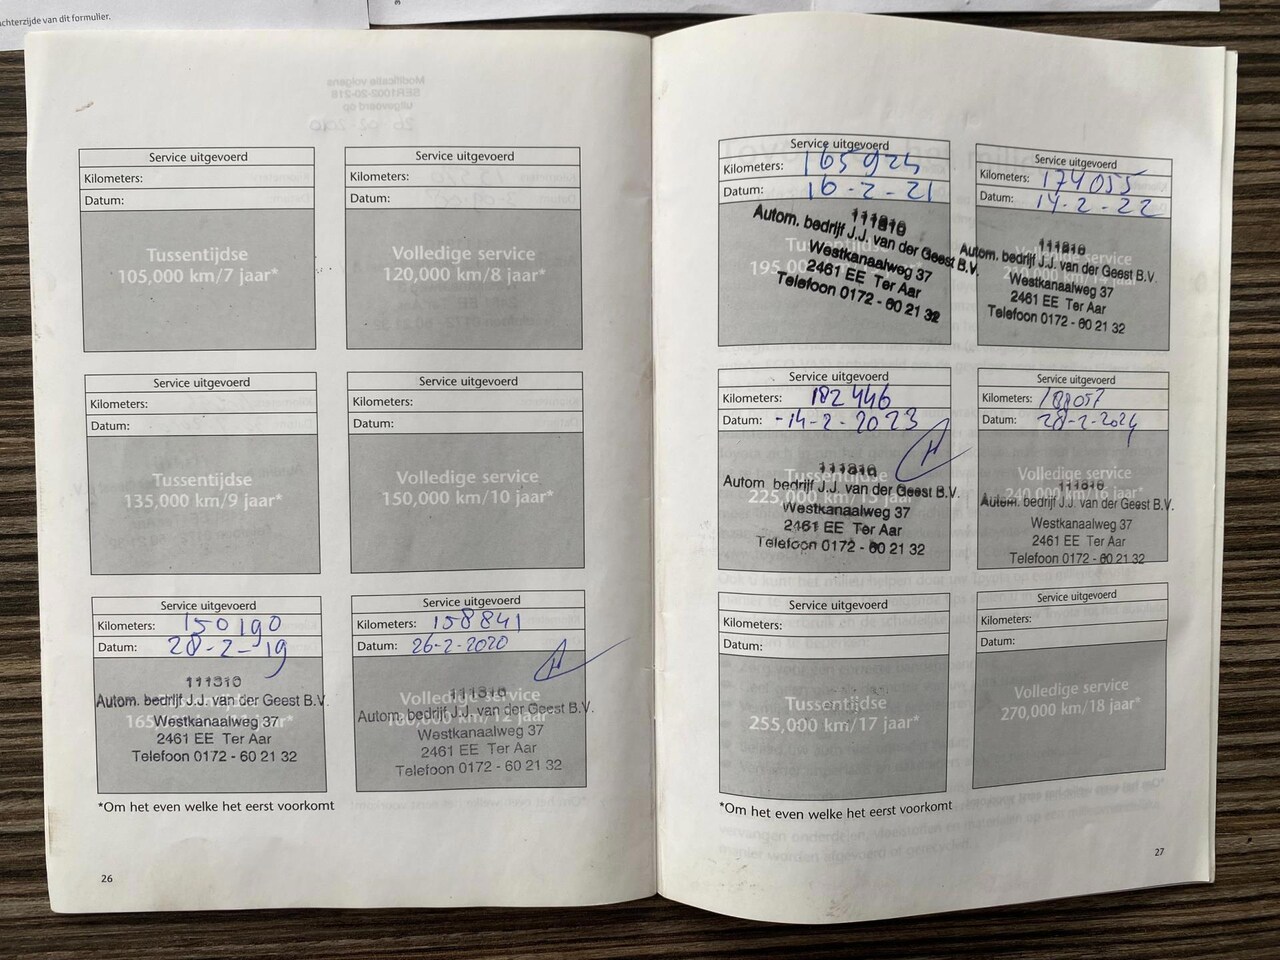 achterzijde van dit formulier.
Service uitgevoerd
Kilometers:
Datum:
Tussentijdse
105,000 km/7 jaar*
Service uitgevoerd
Kilometers:
Datum:
Volledige service
120,000 km/8 jaar*
Service uitgevoerd
Kilometers:
Datum:
Tussentijdse
135,000 km/9 jaar*
Service uitgevoerd
Kilometers:
Datum:
Volledige service
150,000 km/10 jaar*
Service uitgevoerd
Kilometers: 150190
Datum: 28-2-19
111810
Autom. bedrijf J.J. van der Geest B.V.
Westkanaalweg 37
2461 EE Ter Aar
Telefoon 0172 - 60 21 32
Service uitgevoerd
Kilometers: 158841
Datum: 26-2-2020
Volledige service
111810
Autom. bedrijf J.J. van der Geest B.V.
Westkanaalweg 37
2461 EE Ter Aar
Telefoon 0172 - 60 21 32
*Om het even welke het eerst voorkomt
26
Service uitgevoerd
Kilometers: 165924
Datum: 16-2-21
111810
Autom. bedrijf J.J. van der Geest B.V.
Westkanaalweg 37
2461 EE Ter Aar
Telefoon 0172 - 60 21 32
Service uitgevoerd
Kilometers: 174055
Datum: 14-2-22
111810
Autom. bedrijf J.J. van der Geest B.V.
Westkanaalweg 37
2461 EE Ter Aar
Telefoon 0172 - 60 21 32
Service uitgevoerd
Kilometers: 182446
Datum: -14-2-2023
Tussentijdse
111810
225,000 km/15 jaar*
Autom bedrijf J.J. van der Geest B.V.
Westkanaalweg 37
2461 EE Ter Aar
Telefoon 0172 - 60 21 32
Service uitgevoerd
Kilometers: 188057
Datum: 28-2-2024
Volledige service
111810
240,000 km/16 jaar*
Autom. bedrijf J.J. van der Geest B.V.
Westkanaalweg 37
2461 EE Ter Aar
Telefoon 0172 - 60 21 32
Service uitgevoerd
Kilometers:
Datum:
Tussentijdse
255,000 km/17 jaar*
Service uitgevoerd
Kilometers:
Datum:
Volledige service
270,000 km/18 jaar*
*Om het even welke het eerst voorkomt
27